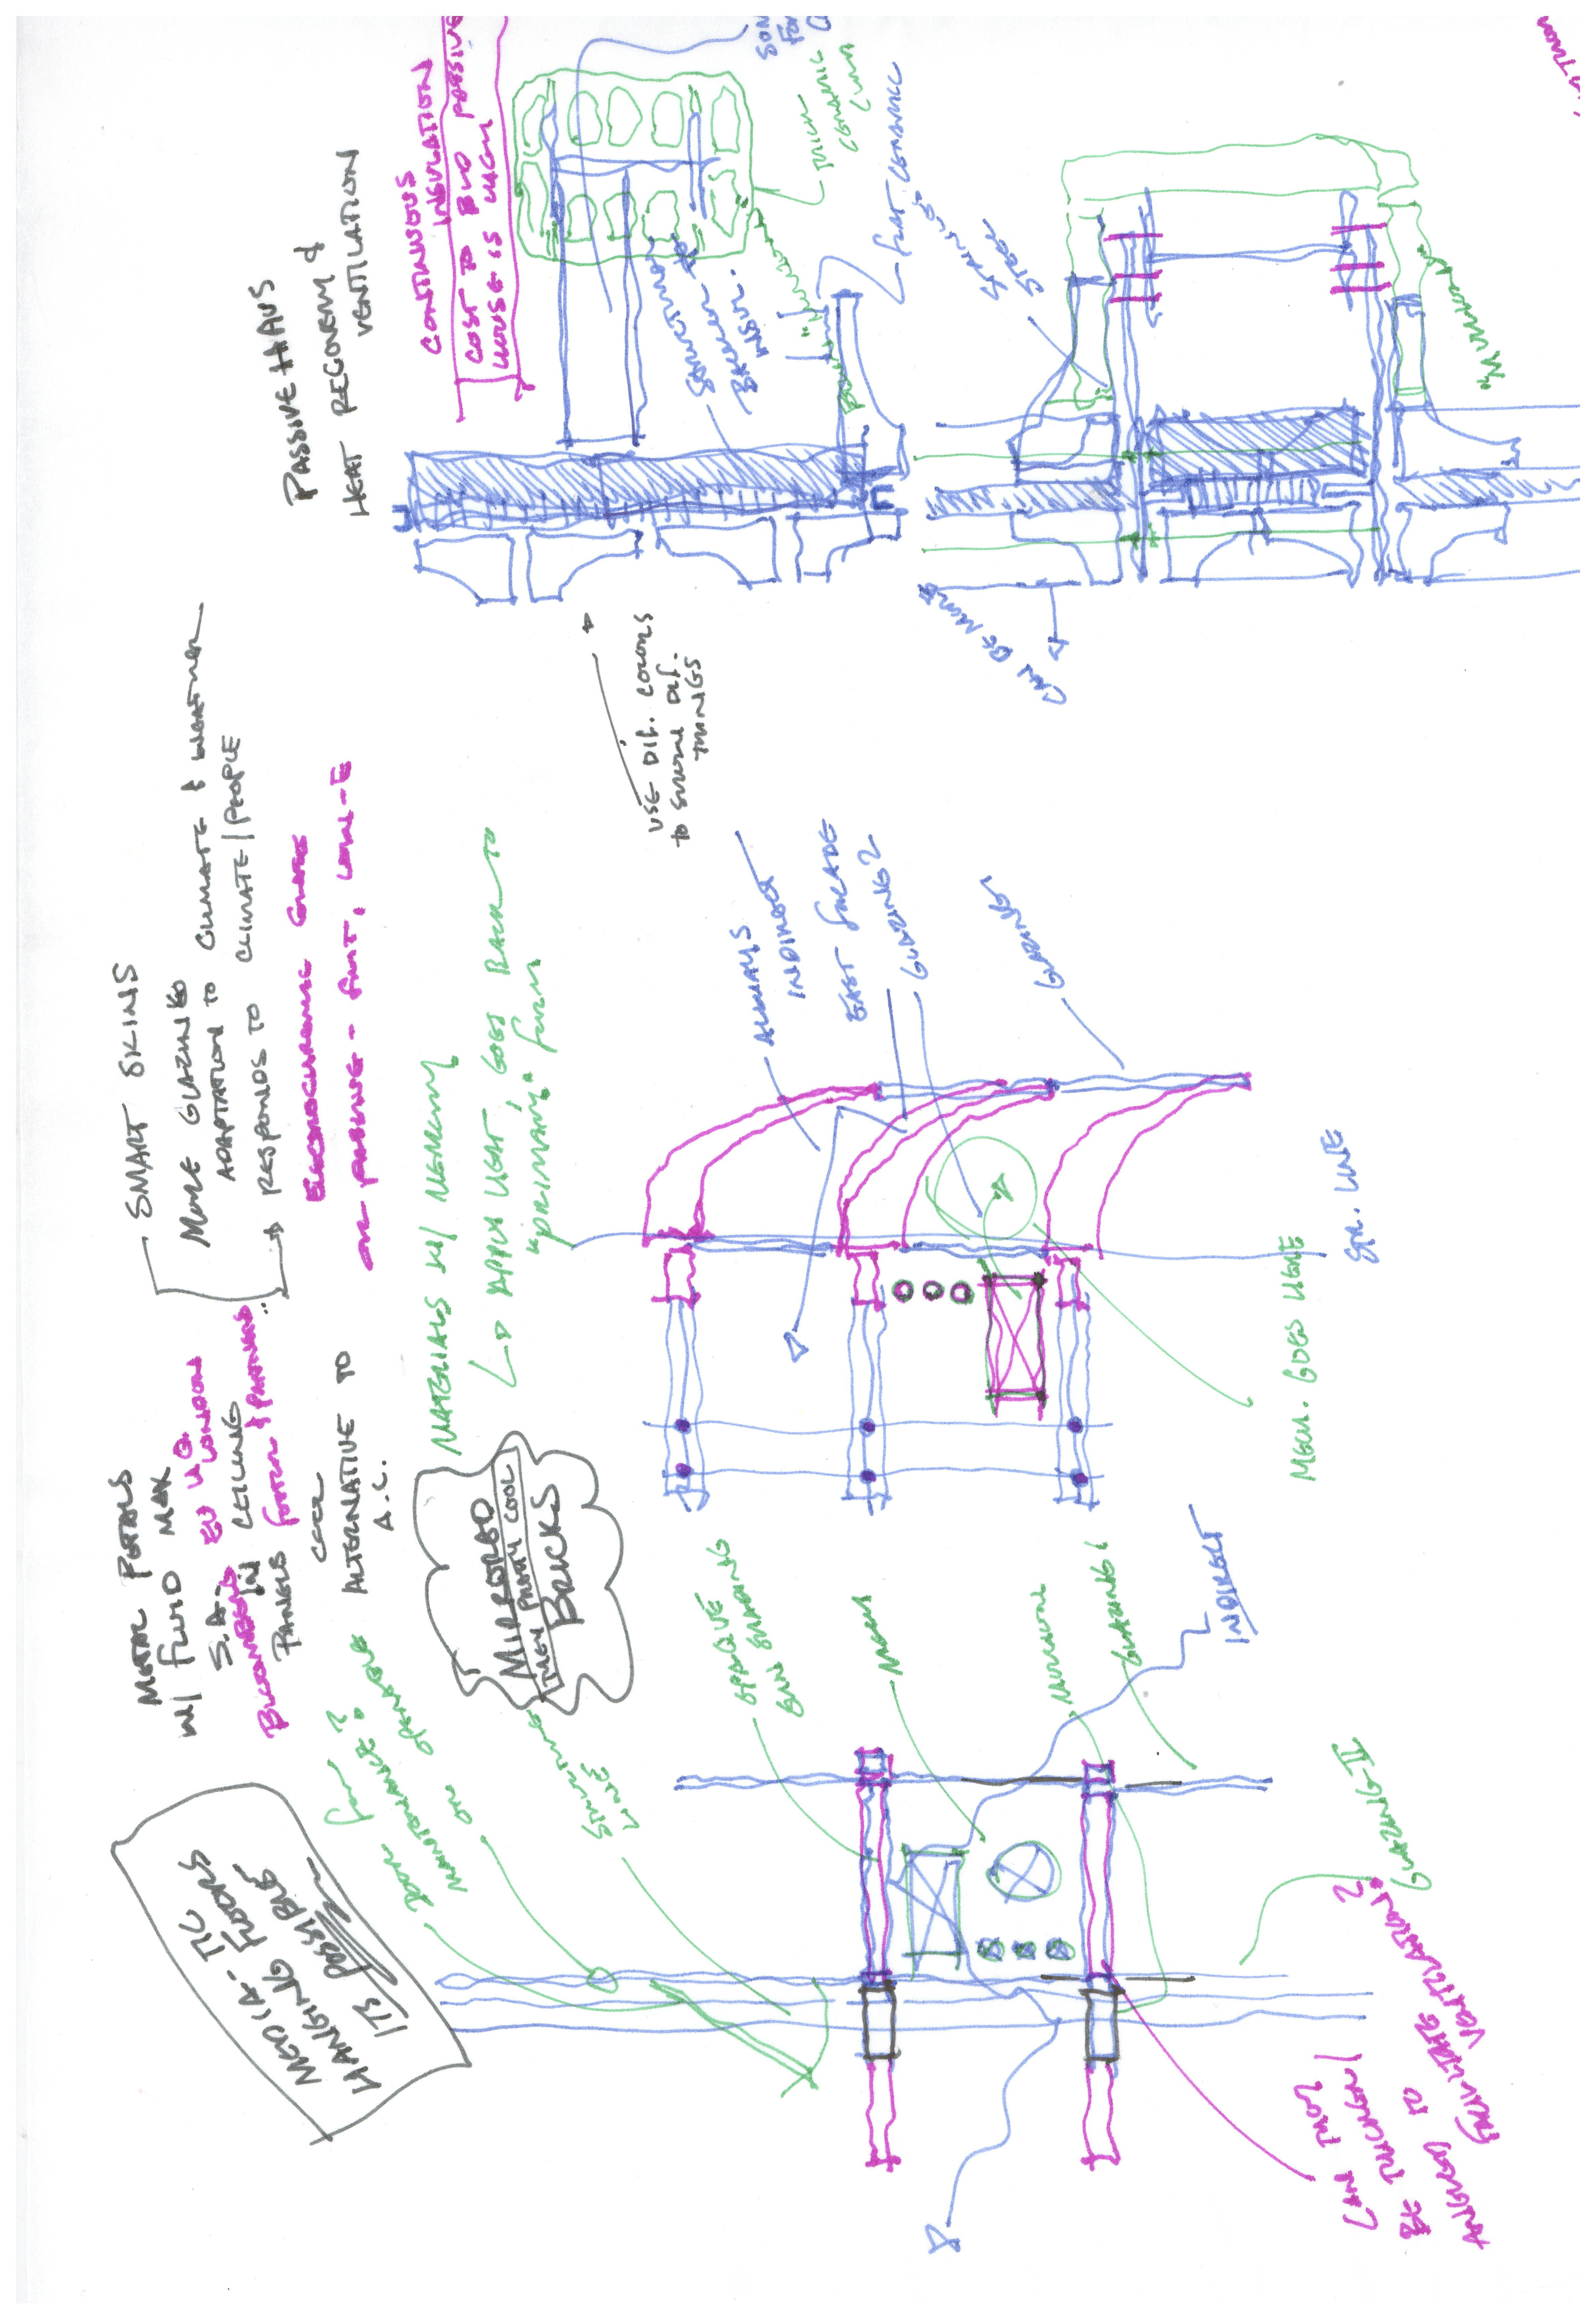 MEDIA-TIC
HANGING FLOORS
ITS POSSIBLE
METAL PORTALS
W/ FLUID MAX
S.A. EU HQ LONDON
BLOOMBERG W/ CEILING
PANELS FOSTER & PARTNERS
COOL
ALTERNATIVE TO
A.C.
SMART SKINS
MORE GLAZING
ADAPTATION TO CLIMATE & WEATHER
RESPONDS TO CLIMATE/PEOPLE
ELECTROCHROMIC GLASS
LOW-E
PASSIVE HAUS
HEAT RECOVERY &
VENTILATION
CONTINUOUS
INSULATION
COST TO BLD PASSIVE
HOUSE IS HIGH
MATERIALS W/ MEMORY
APPLY HEAT GOES BACK TO
"PRIMARY" FORM
MIRRORED
THEY PRETTY COOL
BRICKS
USE DIF. COLORS
TO SHOW DIF.
THINGS
DOOR FOR
MAINTENANCE?
OR OPERABLE
STRUCTURE
LINE
OPAQUE
SUN SHADING
MECH
MULLION
GLAZING 1
INDIRECT
GLAZING-II
CAN THEY
BE THICKER/
ANGLED TO
FACILITATE
VENTILATION?
ALWAYS
INDIRECT
EAST FACADE
GLAZING 2
GLAZING
MECH. GOES HERE
STR. LINE
STRUCTURE TO
BACKER
INSUL.
THICK
CERAMIC
FLAT CERAMIC
STAINLESS
STEEL
"MULLION"
"MULLION"
CAN BE